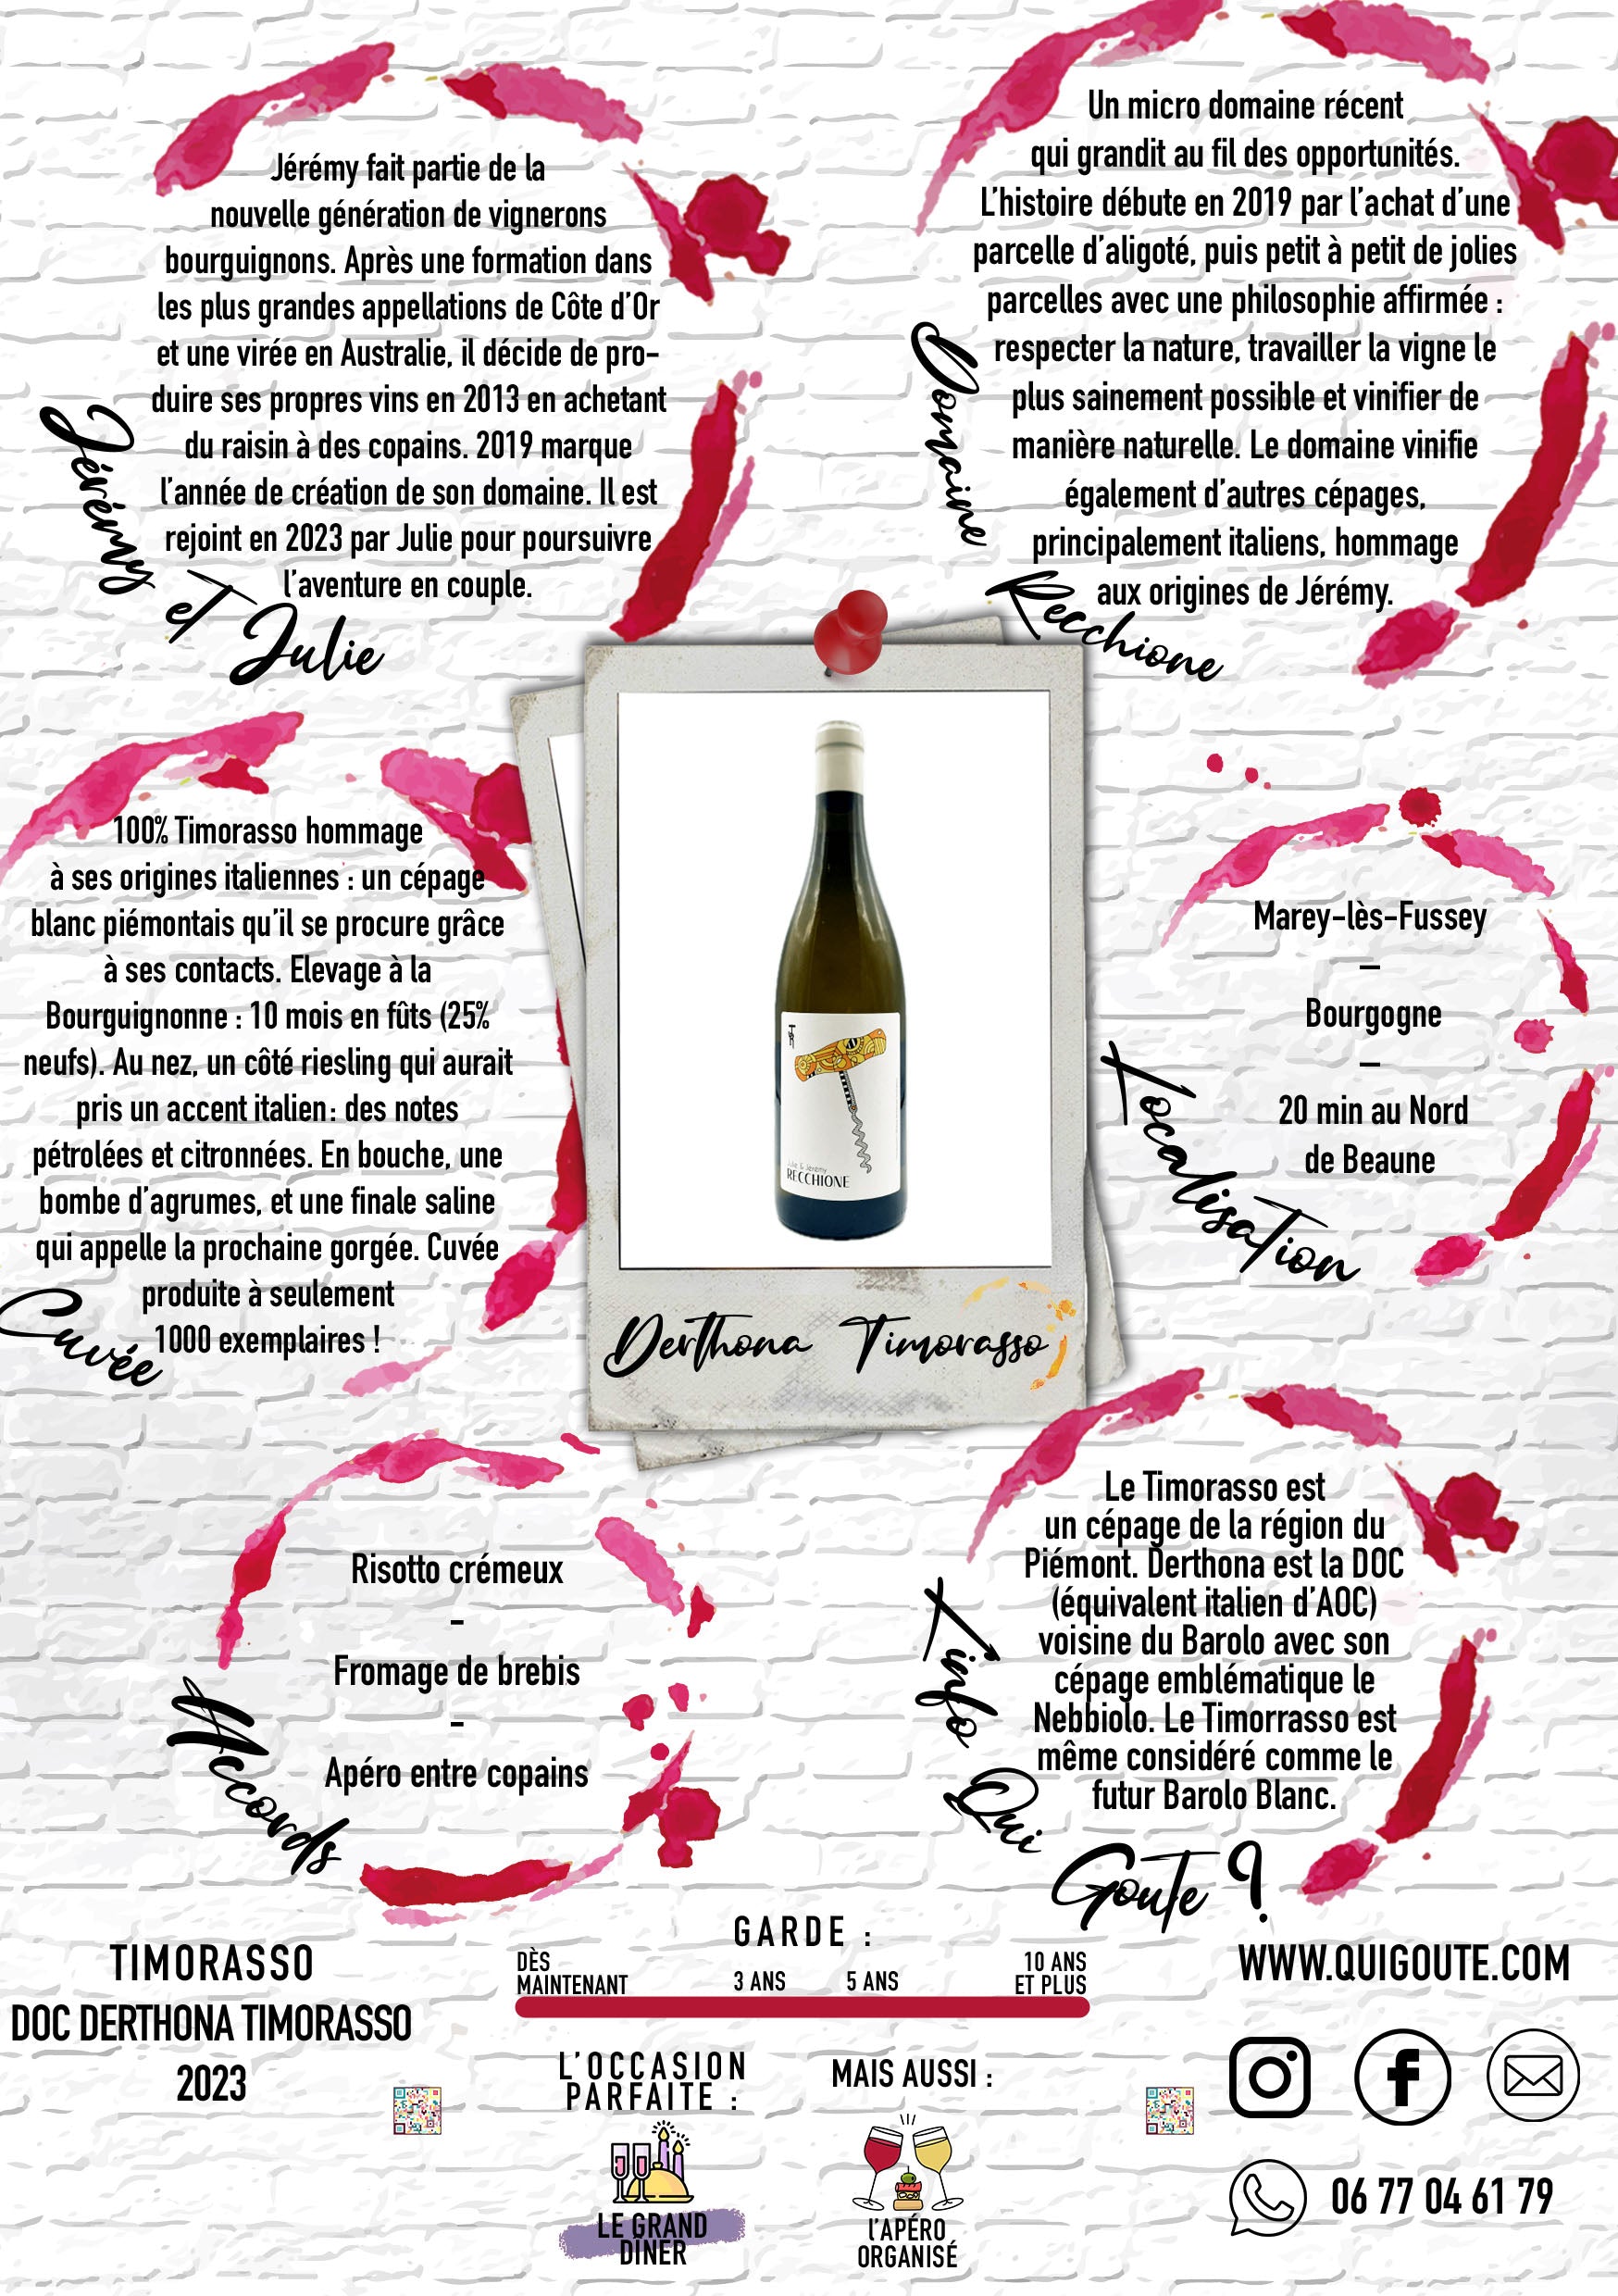 Jérémy fait partie de la
nouvelle génération de vignerons
bourguignons. Après une formation dans
les plus grandes appellations de Côte d'Or
et une virée en Australie, il décide de pro-
duire ses propres vins en 2013 en achetant
du raisin à des copains. 2019 marque
l'année de création de son domaine. Il est
rejoint en 2023 par Julie pour poursuivre
l'aventure en couple.
Jérémy et Julie
Un micro domaine récent
qui grandit au fil des opportunités.
L'histoire débute en 2019 par l'achat d'une
parcelle d'aligoté, puis petit à petit de jolies
parcelles avec une philosophie affirmée :
respecter la nature, travailler la vigne le
plus sainement possible et vinifier de
manière naturelle. Le domaine vinifie
également d'autres cépages,
principalement italiens, hommage
aux origines de Jérémy.
Domaine Recchione
100% Timorasso hommage
à ses origines italiennes : un cépage
blanc piémontais qu'il se procure grâce
à ses contacts. Elevage à la
Bourguignonne : 10 mois en fûts (25%
neufs). Au nez, un côté riesling qui aurait
pris un accent italien : des notes
pétrolées et citronnées. En bouche, une
bombe d'agrumes, et une finale saline
qui appelle la prochaine gorgée. Cuvée
produite à seulement
1000 exemplaires !
Cuvée
Julie & Jérémy
RECCHIONE
Derthona Timorasso
Marey-lès-Fussey
–
Bourgogne
–
20 min au Nord
de Beaune
Localisation
Risotto crémeux
-
Fromage de brebis
-
Apéro entre copains
Accords
Le Timorasso est
un cépage de la région du
Piémont. Derthona est la DOC
(équivalent italien d'AOC)
voisine du Barolo avec son
cépage emblématique le
Nebbiolo. Le Timorrasso est
même considéré comme le
futur Barolo Blanc.
L'info Qui Goute ?
TIMORASSO
DOC DERTHONA TIMORASSO
2023
GARDE :
DÈS
MAINTENANT
3 ANS
5 ANS
10 ANS
ET PLUS
L'OCCASION
PARFAITE :
LE GRAND
DÎNER
MAIS AUSSI :
l'APÉRO
ORGANISÉ
WWW.QUIGOUTE.COM
06 77 04 61 79